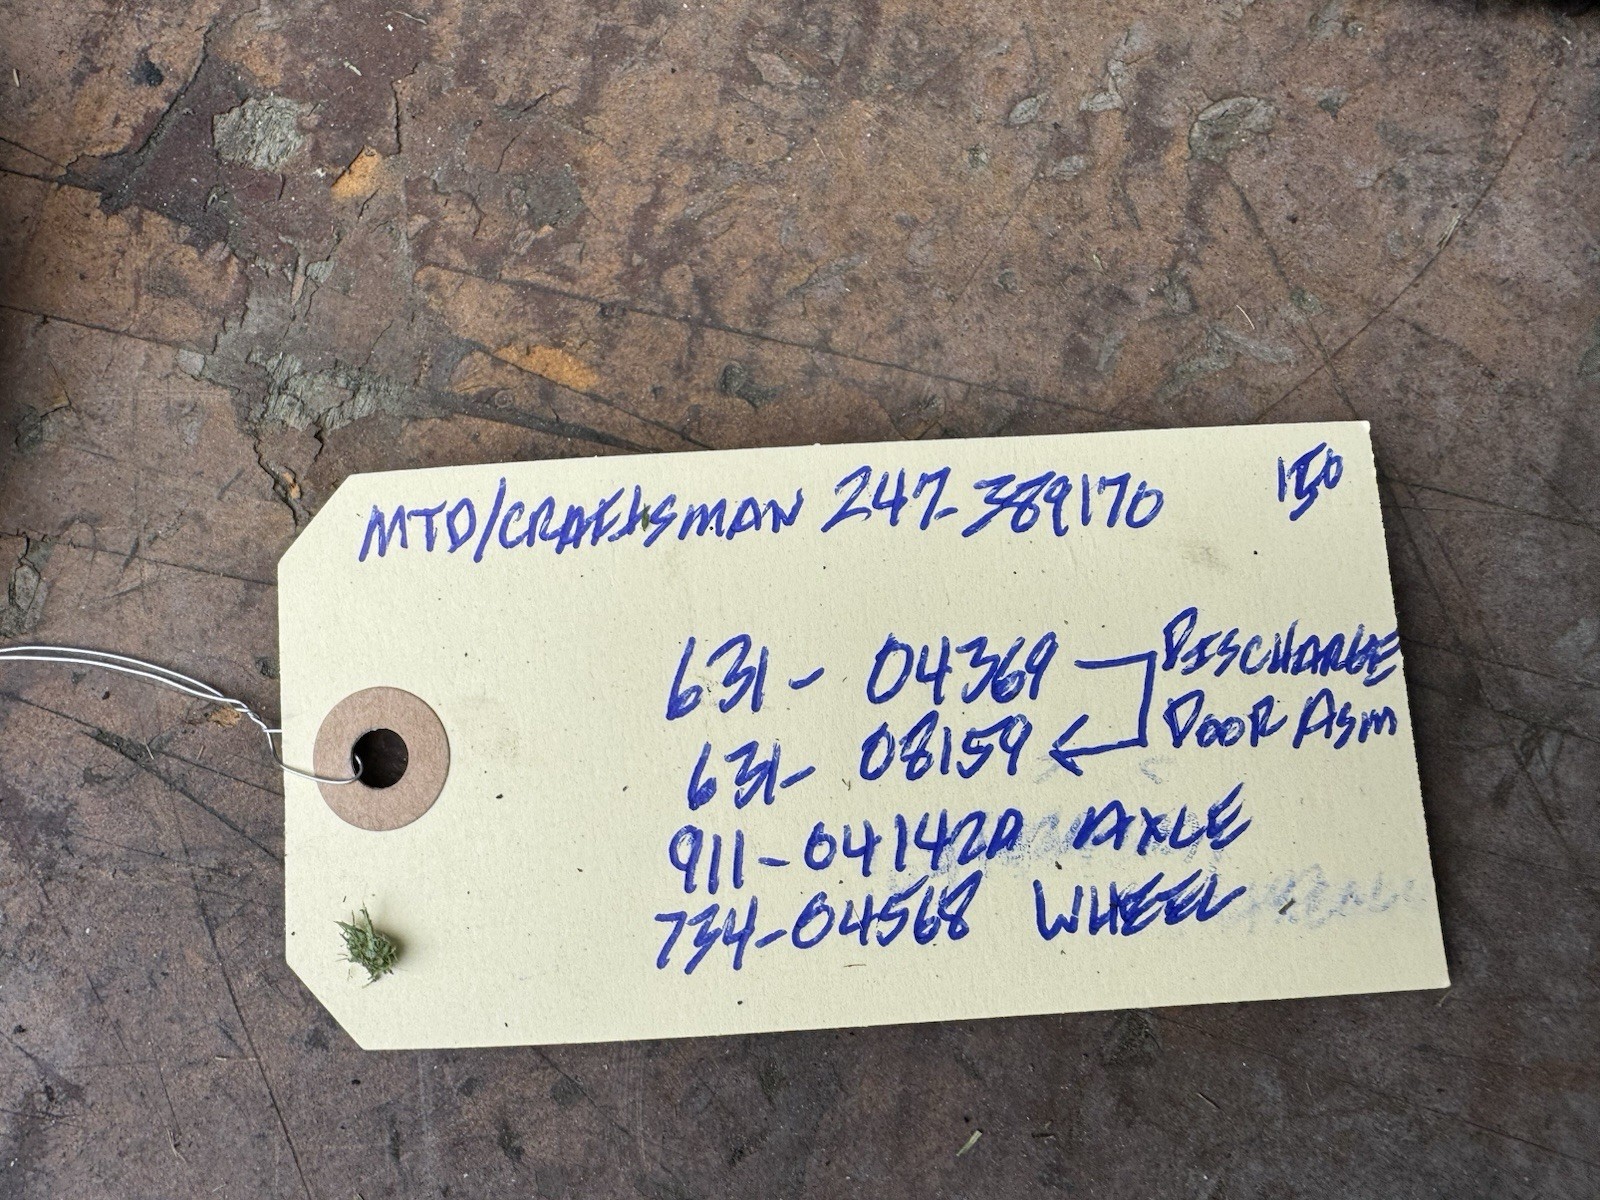 MTD/CRAFtSMAN 247-389170 150
631-04369 DISCHARGE
631-08159 DOOR ASM
911-04142A AXLE
734-04568 WHEEL